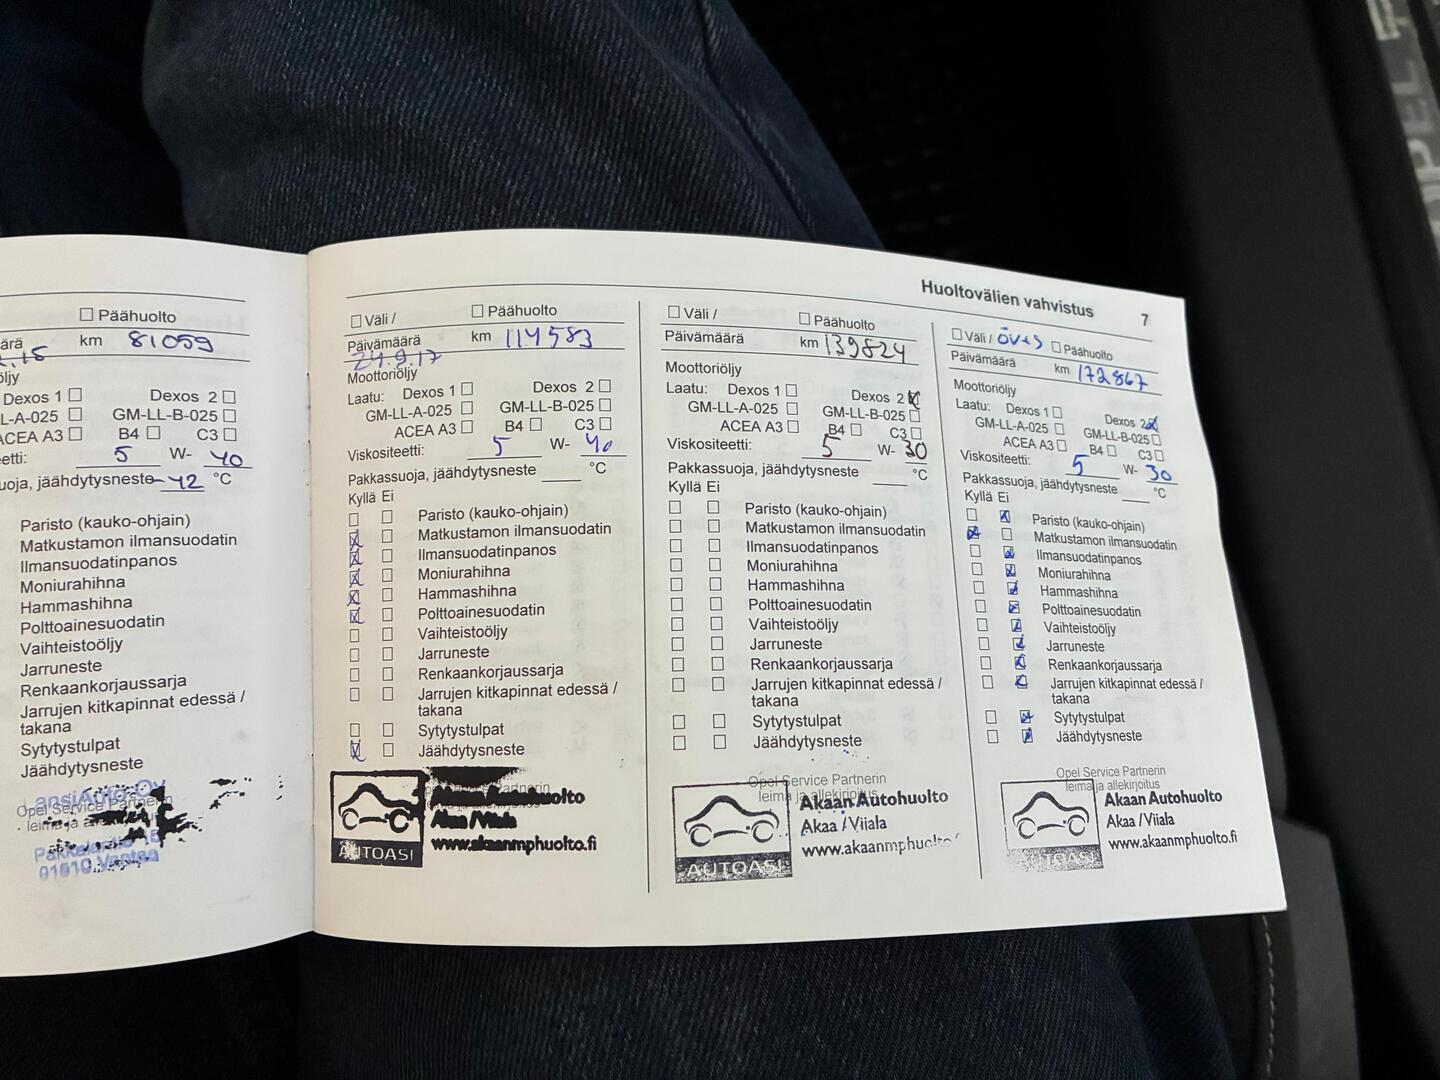 Huoltovälien vahvistus 7
☐ Päähuolto
km 81059
Dexos 1 ☐ Dexos 2 ☐
LL-A-025 ☐ GM-LL-B-025 ☐
ACEA A3 ☐ B4 ☐ C3 ☐
5 W- 40
jäähdytysneste -42 °C
Paristo (kauko-ohjain)
Matkustamon ilmansuodatin
Ilmansuodatinpanos
Moniurahihna
Hammashihna
Polttoainesuodatin
Vaihteistoöljy
Jarruneste
Renkaankorjaussarja
Jarrujen kitkapinnat edessä /
takana
Sytytystulpat
Jäähdytysneste
Opel Service Partnerin
01610 Vantaa
☐ Väli / ☐ Päähuolto
Päivämäärä km 114583
24.9.17
Moottoriöljy
Laatu: Dexos 1 ☐ Dexos 2 ☐
GM-LL-A-025 ☐ GM-LL-B-025 ☐
ACEA A3 ☐ B4 ☐ C3 ☐
Viskositeetti: 5 W- 40
Pakkassuoja, jäähdytysneste ____ °C
Kyllä Ei
☐ ☐ Paristo (kauko-ohjain)
☒ ☐ Matkustamon ilmansuodatin
☒ ☐ Ilmansuodatinpanos
☒ ☐ Moniurahihna
☒ ☐ Hammashihna
☒ ☐ Polttoainesuodatin
☐ ☐ Vaihteistoöljy
☐ ☐ Jarruneste
☐ ☐ Renkaankorjaussarja
☐ ☐ Jarrujen kitkapinnat edessä /
takana
☐ ☐ Sytytystulpat
☒ ☐ Jäähdytysneste
Akaan Autohuolto
Akaa / Viiala
www.akaanmphuolto.fi
AUTOASI
☐ Väli / ☐ Päähuolto
Päivämäärä km 139824
Moottoriöljy
Laatu: Dexos 1 ☐ Dexos 2 ☒
GM-LL-A-025 ☐ GM-LL-B-025 ☐
ACEA A3 ☐ B4 ☐ C3 ☐
Viskositeetti: 5 W- 30
Pakkassuoja, jäähdytysneste ____ °C
Kyllä Ei
☐ ☐ Paristo (kauko-ohjain)
☐ ☐ Matkustamon ilmansuodatin
☐ ☐ Ilmansuodatinpanos
☐ ☐ Moniurahihna
☐ ☐ Hammashihna
☐ ☐ Polttoainesuodatin
☐ ☐ Vaihteistoöljy
☐ ☐ Jarruneste
☐ ☐ Renkaankorjaussarja
☐ ☐ Jarrujen kitkapinnat edessä /
takana
☐ ☐ Sytytystulpat
☐ ☐ Jäähdytysneste
Opel Service Partnerin
leima ja allekirjoitus
Akaan Autohuolto
Akaa / Viiala
www.akaanmphuolto.f
AUTOASI
☐ Väli / ☐ Päähuolto
Päivämäärä km 172867
Moottoriöljy
Laatu: Dexos 1 ☐ Dexos 2 ☒
GM-LL-A-025 ☐ GM-LL-B-025 ☐
ACEA A3 ☐ B4 ☐ C3 ☐
Viskositeetti: 5 W- 30
Pakkassuoja, jäähdytysneste ____ °C
Kyllä Ei
☐ ☒ Paristo (kauko-ohjain)
☒ ☐ Matkustamon ilmansuodatin
☐ ☒ Ilmansuodatinpanos
☐ ☒ Moniurahihna
☐ ☒ Hammashihna
☐ ☒ Polttoainesuodatin
☐ ☒ Vaihteistoöljy
☐ ☒ Jarruneste
☐ ☒ Renkaankorjaussarja
☐ ☒ Jarrujen kitkapinnat edessä /
takana
☐ ☒ Sytytystulpat
☐ ☒ Jäähdytysneste
Opel Service Partnerin
leima ja allekirjoitus
Akaan Autohuolto
Akaa / Viiala
www.akaanmphuolto.fi
AUTOASI
OPEL